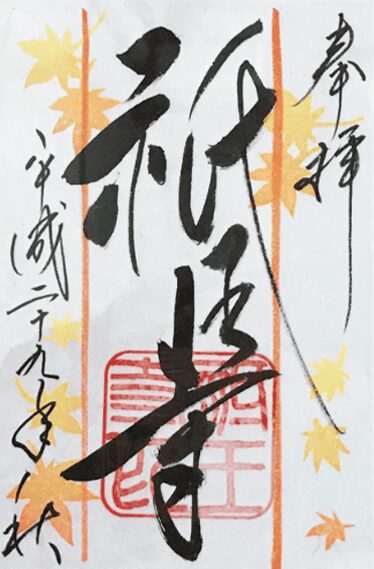 奉拝
祇王寺
平成二十九年秋